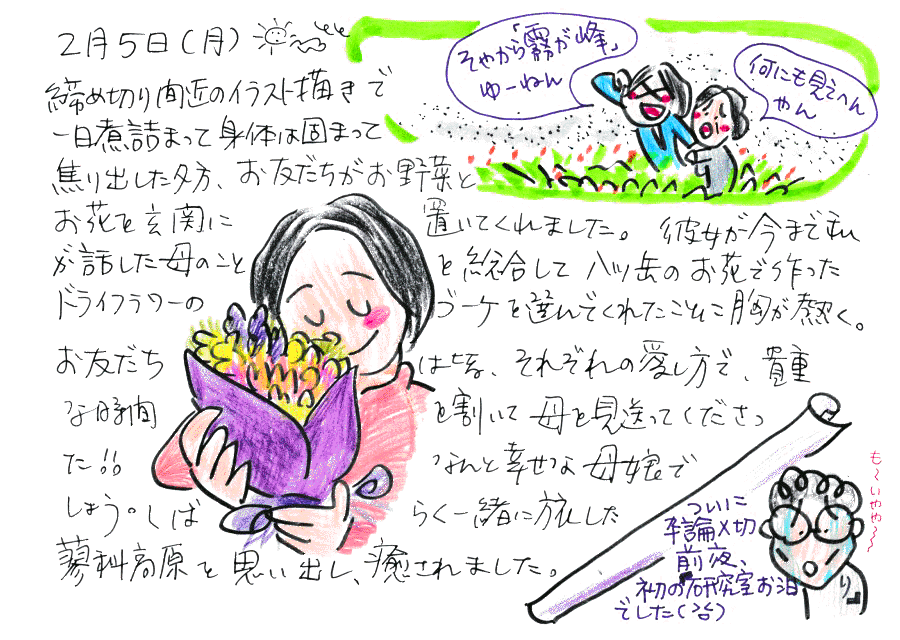 2月5日(月)
締め切り間近のイラスト描きで
一日煮詰まって身体は固まって
焦り出した夕方、お友だちがお野菜と
お花を玄関に置いてくれました。彼女が今まで私
が話した母のことを総合して八ヶ岳のお花で作った
ドライフラワーのブーケを選んでくれたことに胸が熱く。
お友だちは皆、それぞれの愛し方で、貴重
な時間を割いて母を見送ってくださっ
た!!なんと幸せな母娘で
しょう。しばらく一緒に旅した
蓼科高原を思い出し、癒されました。
そやから「霧が峰」
ゆーねん
何にも見えへん
やん
も〜いやや〜〜〜
ついに
卒論〆切
前夜、
初の研究室お泊
りでした(治)